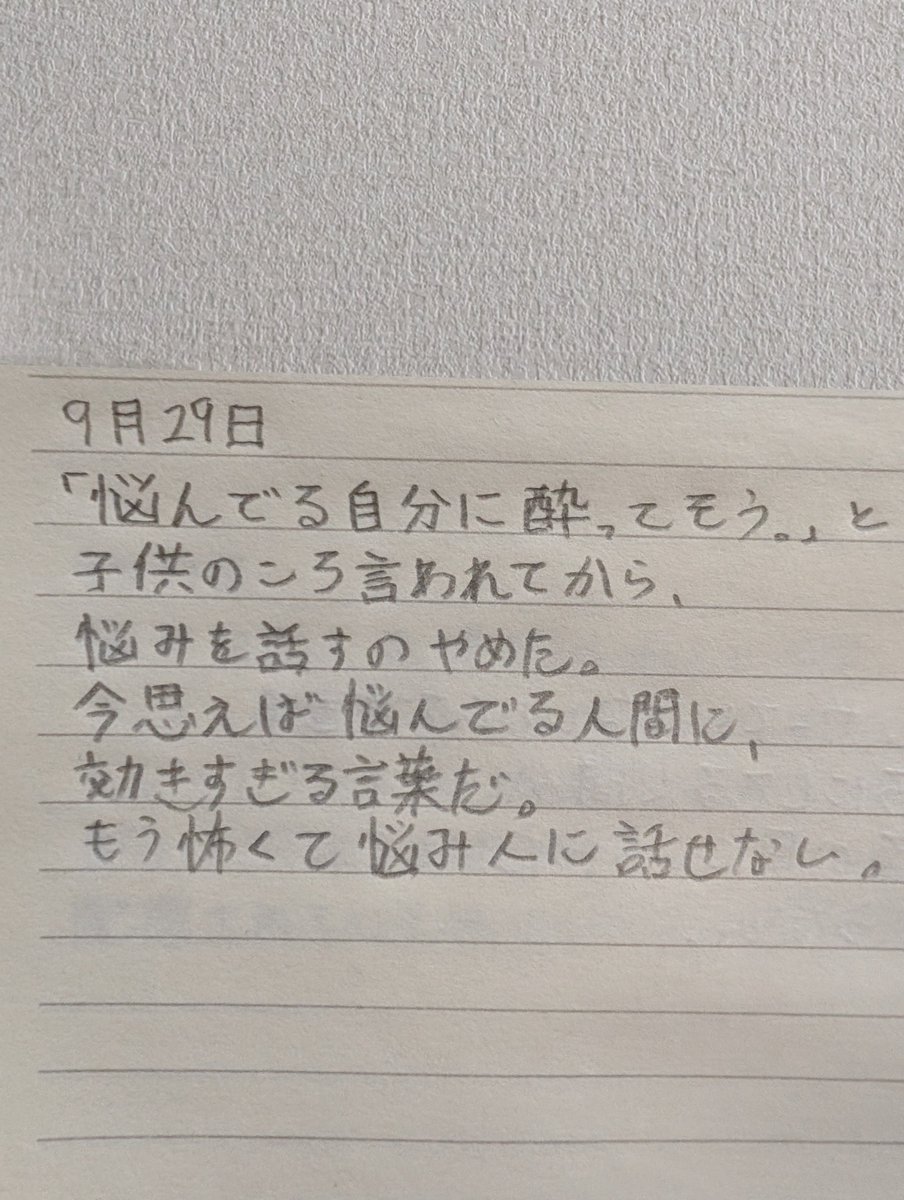 9月29日
「悩んでる自分に酔ってそう。」と
子供のころ言われてから、
悩みを話すのやめた。
今思えば悩んでる人間に、
効きすぎる言葉だ。
もう怖くて悩み人に話せない。